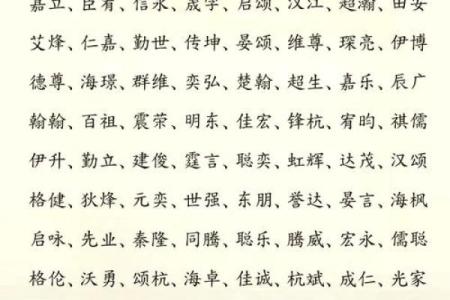 嘉立、臣宥、信永、晟宇、启颂、汉江、超瀚、由安
艾烽、仁嘉、勤世、传坤、晏颂、维尊、琛亮、伊博
德尊、海璟、群维、奕弘、楚翰、超生、嘉乐、辰广
翰翰、百祖、震荣、明东、佳宏、锋杭、宥昀、祺儒
伊升、勤立、建俊、霆言、聪奕、虹辉、达茂、汉颂
格健、狄烽、元奕、世强、东朋、誉达、晏言、海枫
启咏、先业、秦隆、同腾、聪乐、腾威、宏永、儒聪
格伦、沃勇、颂杭、海卓、佳诚、杭斌、成仁、光家